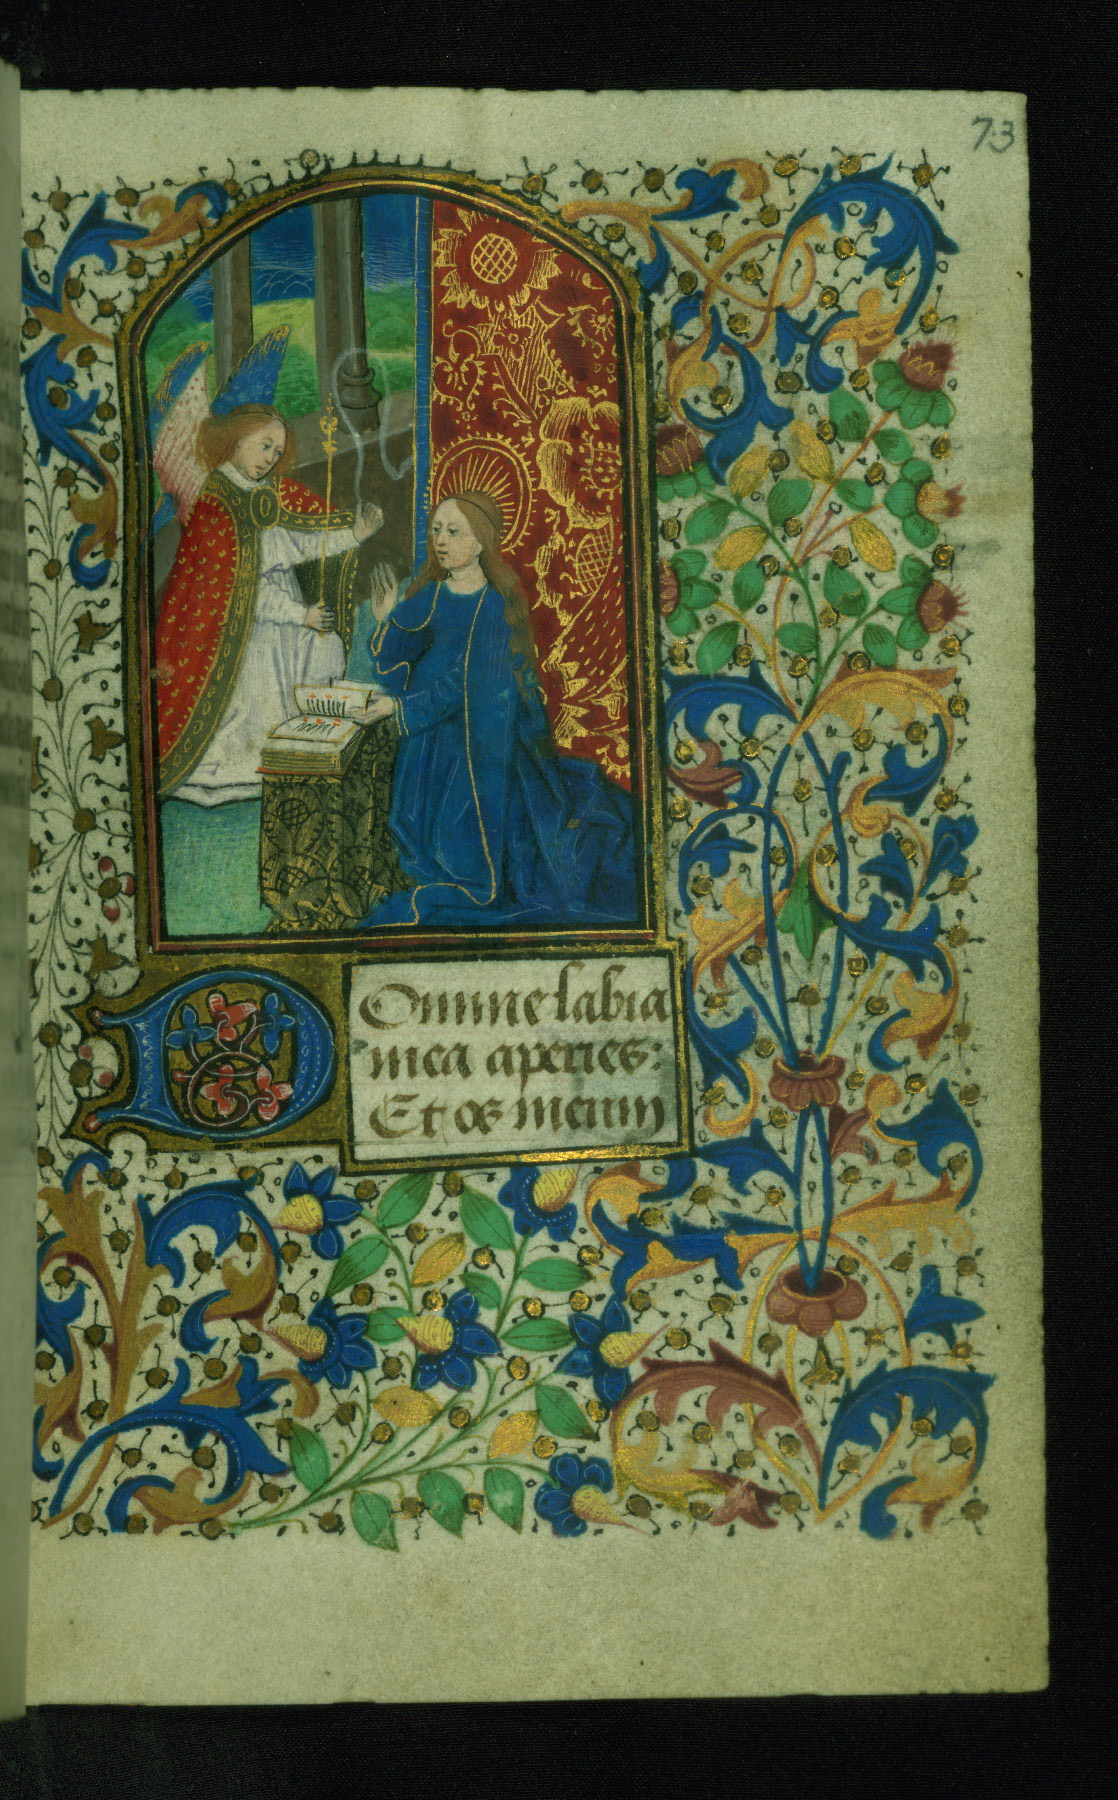 73
Domine labia
mea aperies:
Et os meum